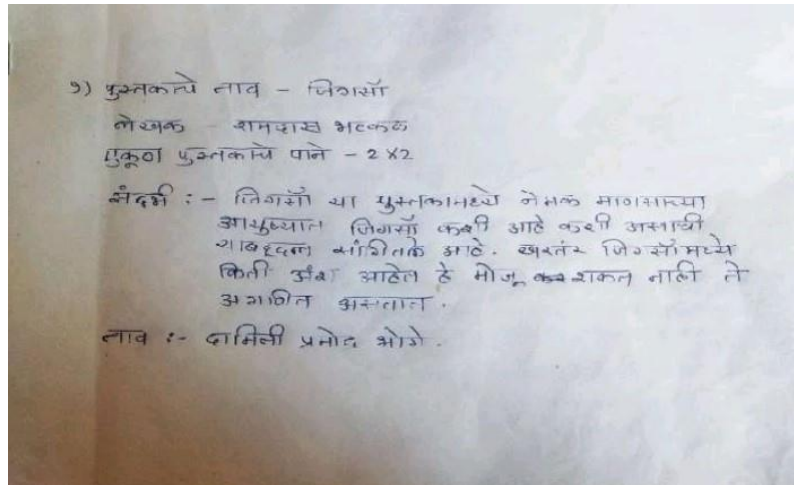 १) पुस्तकाचे नाव - जिगसॉ
लेखक - रामदास भटकळ
एकूण पुस्तकाचे पाने - 2x2
संदर्भ :- जिगसॉ या पुस्तकामध्ये नेमक माणसाच्या
आयुष्यात जिगसॉ कशी आहे कशी असावी
याबद्दल सांगितले आहे. खरतर जिगसॉमध्ये
किती अंश आहेत हे मोजू शकत नाही ते
अगणित असतात.
नाव :- दामिनी प्रमोद भोगे.